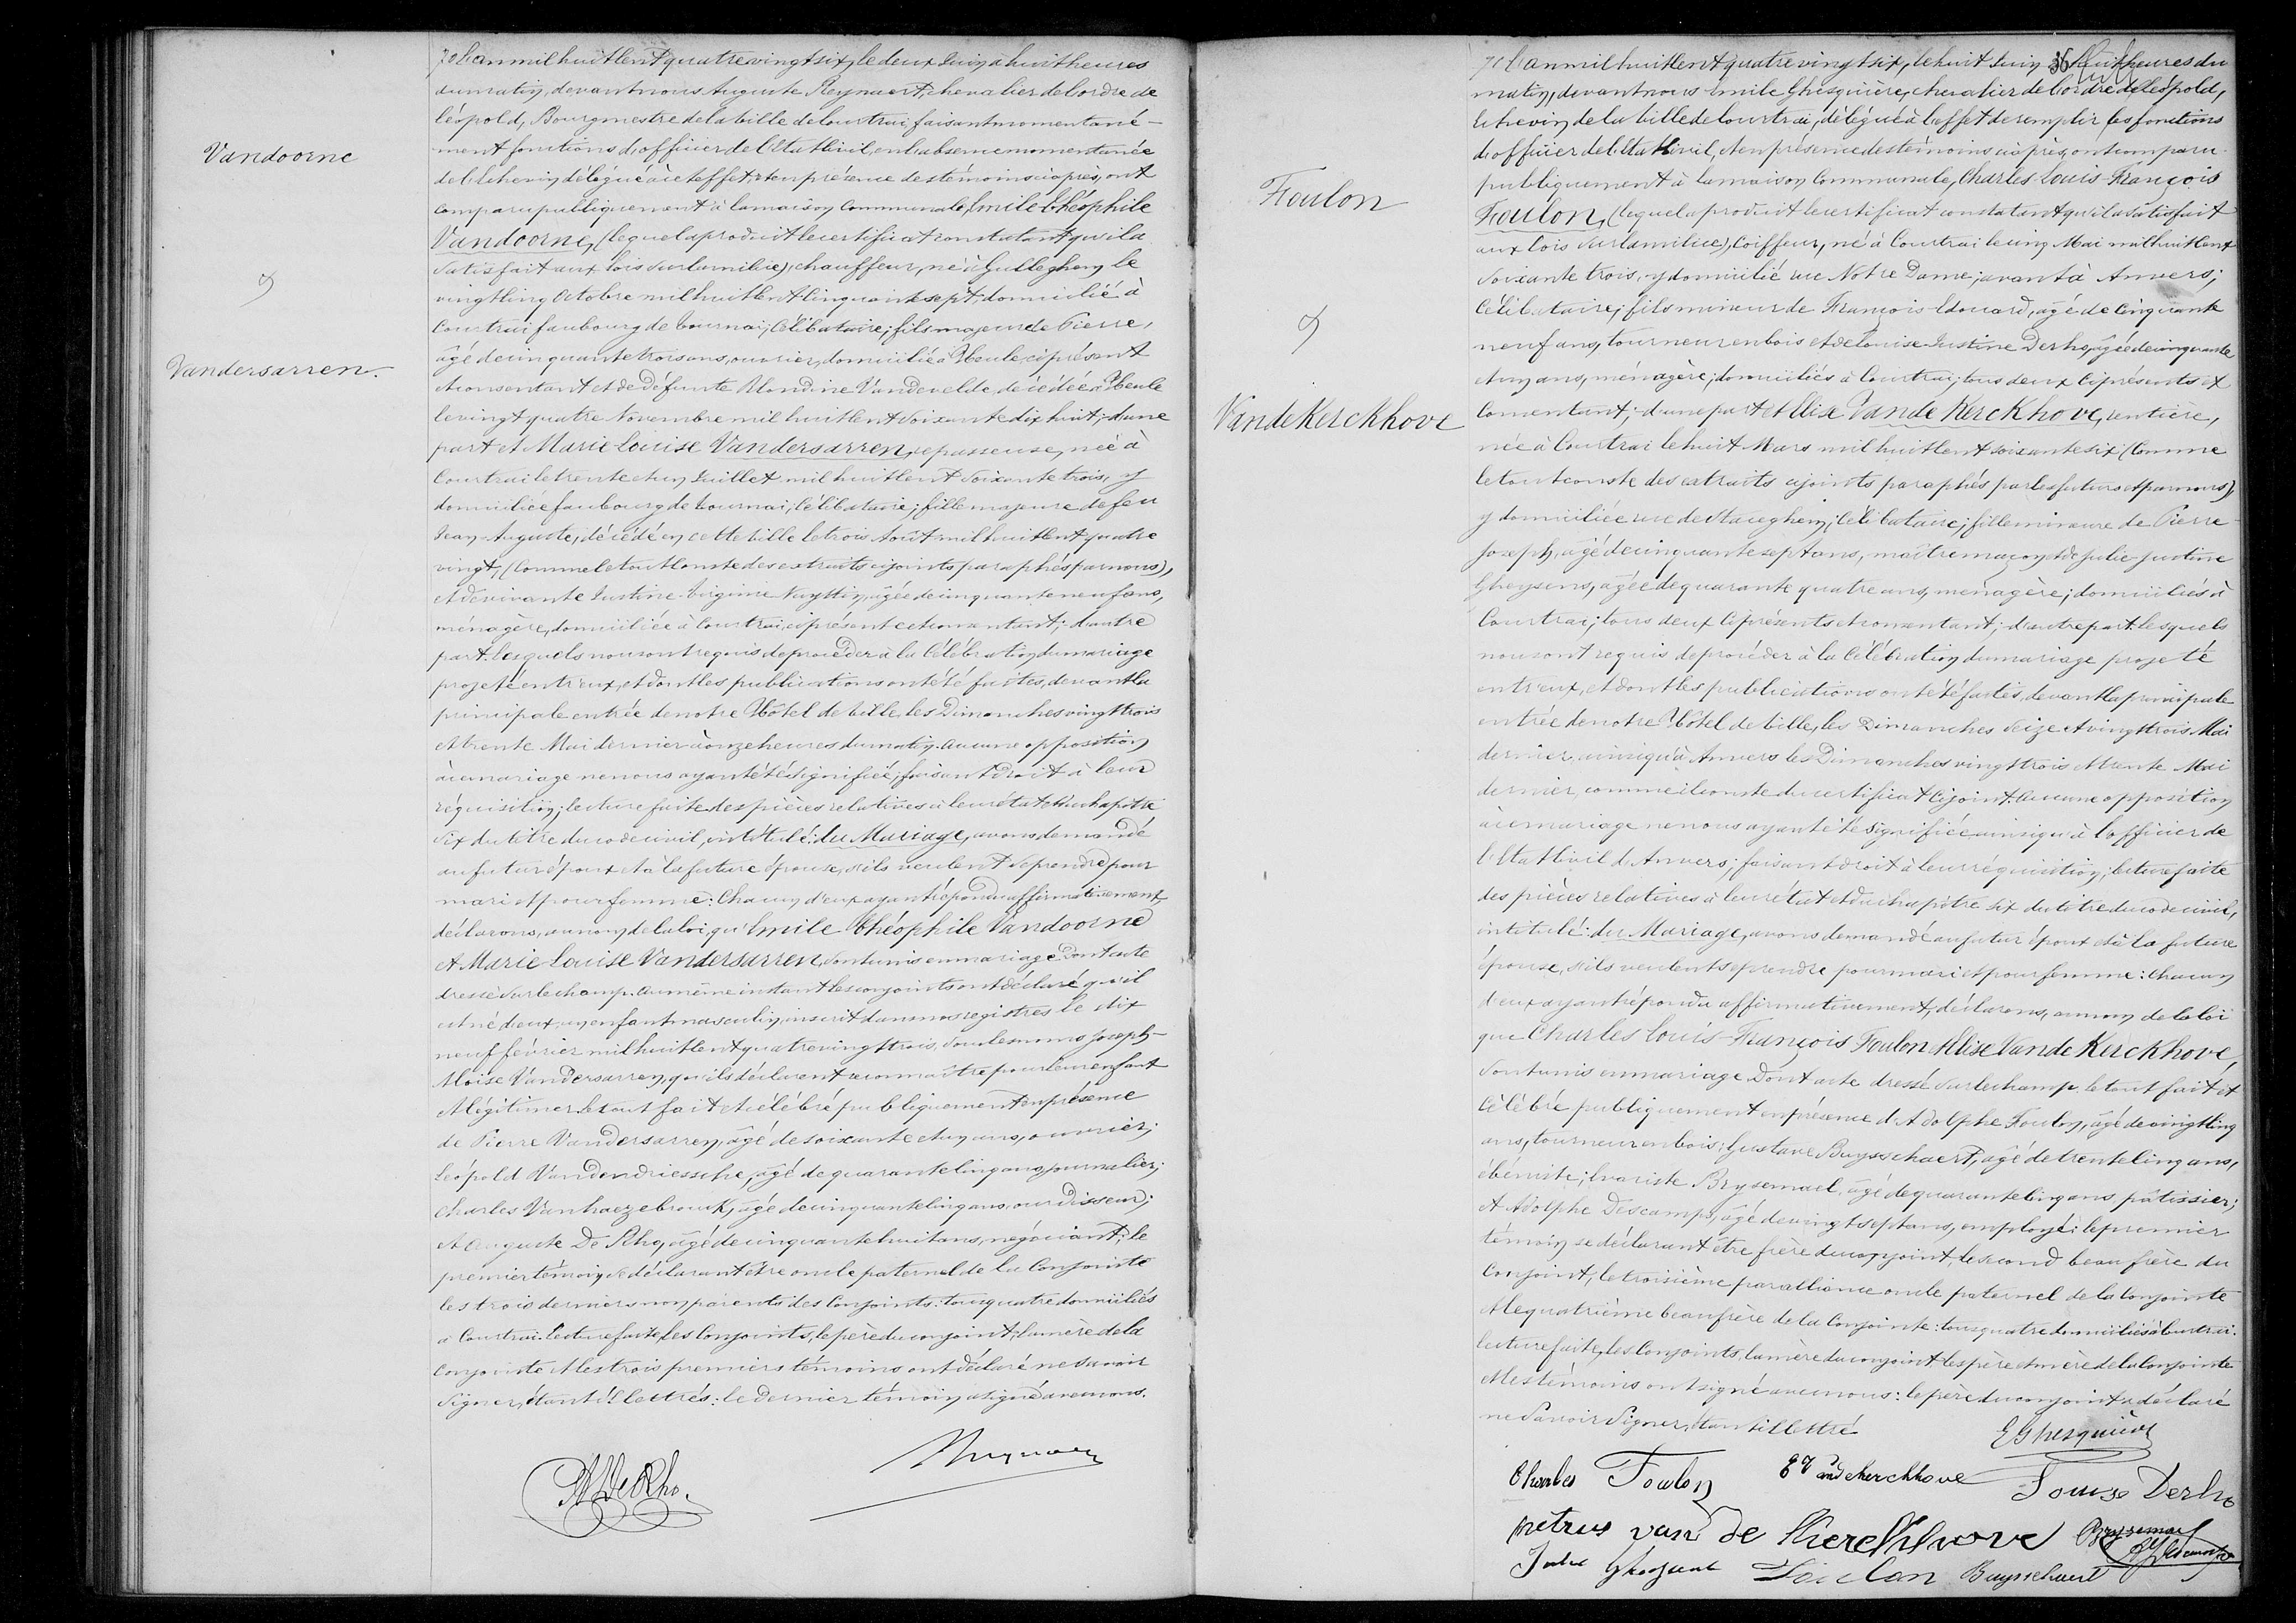 Vandoorne
&
Vandersarren.
70 L'an mil huit Cent quatre vingt six, le deux Juin à huit heures
du matin, devant nous Auguste Reynaert, chevalier de l'ordre de
Léopold, Bourgmestre de la Ville de Courtrai, faisant momentané-
ment fonctions d'officier de l'Etat Civil, en l'absence momentanée
de l'Echevin délégué à cet effet, et en présence des témoins ci après, ont
comparu publiquement à la maison Communale, Emile Théophile
Vandoorne, (lequel a produit le certificat constatant qu'il a
satisfait aux lois sur la milice), chauffeur, né à Gulleghem le
vingt Cinq Octobre mil huit Cent Cinquante sept, domicilié à
Courtrai faubourg de Tournai; Célibataire; fils majeur de Pierre,
âgé de cinquante trois ans, ouvrier, domicilié à Heule, ci présent
et consentant et de défunte Blondine Vandevelde, decédée à Heule
le vingt quatre Novembre mil huit Cent soixante dix huit; d'une
part et Marie Louise Vandersarren, repasseuse, née à
Courtrai le trente et un Juillet mil huit Cent soixante trois, y
domiciliée faubourg de Tournai; Célibataire; fille majeure de feu
Jean Auguste, décédé en cette Ville le trois Août mil huit Cent quatre
vingt, (Comme le tout Conste des extraits cijoints paraphés par nous),
et de vivante Justine Virginie Nuyttin, âgée de cinquante neuf ans,
ménagère, domiciliée à Courtrai, ci présente et consentant; d'autre
part. Lesquels nous ont requis de procéder à la Célébration du mariage
projeté entr'eux, et dont les publications ont été faites, devant la
principale entrée de notre Hôtel de Ville, les Dimanches vingt trois
et trente Mai dernier à onze heures du matin. Aucune opposition
à ce mariage ne nous ayant été signifiée; faisant Droit à leur
réquisition; lecture faite des pièces relatives à leur état et du chapitre
six du titre du code civil, intitulé: du Mariage, avons demandé
au futur époux et à la future épouse, s'ils veulent se prendre pour
mari et pour femme: Chacun d'eux ayant répondu affirmativement,
déclarons, au nom de la loi, qu'Emile Théophile Vandoorne
et Marie Louise Vandersarren, sont unis en mariage Dont acte
dressé sur le champ. Au même instant les conjoints ont déclaré qu'il
est né d'eux, un enfant masculin, inscrit dans nos registres le dix
neuf février mil huit Cent quatre vingt trois, sous les noms Joseph-
Moïse Vandersarren, qu'ils déclarent reconnaître pour leur enfant
et légitimer. Le tout fait et célébré publiquement en présence
de Pierre Vandersarren, âgé de soixante et un ans, ouvrier;
Léopold Vandendriessche, âgé de quarante Cinq ans, journalier;
Charles Vanhaezebrouck, âgé de cinquante Cinq ans, ourdisseur;
et Auguste De Rho, âgé de cinquante huit ans, négociant; le
premier témoin se déclarant être oncle paternel de la Conjointe
les trois derniers non parents des Conjoints: tous quatre domiciliés
à Courtrai. Lecture faite, les Conjoints, le père du conjoint, la mère de la
conjointe et les trois premiers témoins ont déclaré ne savoir
Signer, étant illettrés: le dernier témoin a signé avec nous.
A. De Rho.
Reynaert
Foulon
&
VandeKerckhove
36
71 L'an mil huit Cent quatre vingt six, le huit Juin à huit heures du
matin, devant nous Emile Ghesquière, chevalier de l'ordre de Léopold,
Echevin de la Ville de Courtrai, délégué à l'effet de remplir les fonctions
d'officier de l'Etat Civil, et en présence des témoins ci après, ont comparu
publiquement à la maison Communale, Charles Louis François
Foulon, (lequel a produit le certificat constatant qu'il a satisfait
aux lois sur la milice), Coiffeur, né à Courtrai le cinq Mai mil huit Cent
soixante trois, y domicilié rue Notre Dame; avant à Anvers;
Célibataire; fils mineur de François Edouard, âgé de Cinquante
neuf ans, tourneur en bois et de Louise Justine Derho, âgée de cinquante
et un ans, ménagère; domiciliés à Courtrai; tous deux Ciprésents et
Consentant; d'une part et Elise Vande Kerckhove, rentière,
née à Courtrai le huit Mars mil huit Cent soixante six (Comme
le tout conste des extraits cijoints paraphés par les futurs et par nous),
y domiciliée rue de Staceghem; Célibataire; fille mineure de Pierre
Joseph, âgé de cinquante sept ans, maître maçon et de Julie Justine
Gheysens, âgée de quarante quatre ans, ménagère; domiciliés à
Courtrai; tous deux Ciprésents et consentant; d'autre part. Lesquels
nous ont requis de procéder à la Célébration du mariage projeté
entr'eux, et dont les publications ont été faites, devant la principale
entrée de notre Hôtel de Ville, les Dimanches seize et vingt trois Mai
dernier, ainsi qu'à Anvers les Dimanches vingt trois et trente Mai
dernier, comme il conste du certificat Cijoint. Aucune opposition
à ce mariage ne nous ayant été signifiée ainsi qu'à l'officier de
l'Etat Civil d'Anvers; faisant droit à leur réquisition; lecture faite
des pièces relatives à leur état et du chapitre six du titre du code civil,
intitulé: du Mariage, avons demandé au futur époux et à la future
épouse, s'ils veulent se prendre pour mari et pour femme: chacun
d'eux ayant répondu affirmativement, déclarons, au nom de la loi
que Charles Louis François Foulon et Elise Vande Kerckhove,
sont unis en mariage Dont acte dressé sur le champ. Le tout fait et
célébré publiquement en présence d'Adolphe Foulon, âgé de vingt Cinq
ans, tourneur en bois; Gustave Buysschaert, âgé de trente Cinq ans,
ébéniste; Evariste Brysemael, âgé de quarante Cinq ans, pâtissier;
et Adolphe Descamps, âgé de vingt sept ans, employé; le premier
témoin se déclarant être frère du conjoint, le second beau frère du
Conjoint, le troisième par alliance oncle paternel de la Conjointe
et le quatrième beau frère de la Conjointe: tous quatre domiciliés à Courtrai.
Lecture faite, les Conjoints, la mère du conjoint, les père et mère de la Conjointe
et les témoins ont signé avec nous: le père du conjoint a déclaré
ne Savoir Signer, étant illettré
E Ghesquière
Charles Foulon E Vandekerckhove Louise Derho
petrus van de Kierckhove Brysemael
Julie Foulon Buysschaert